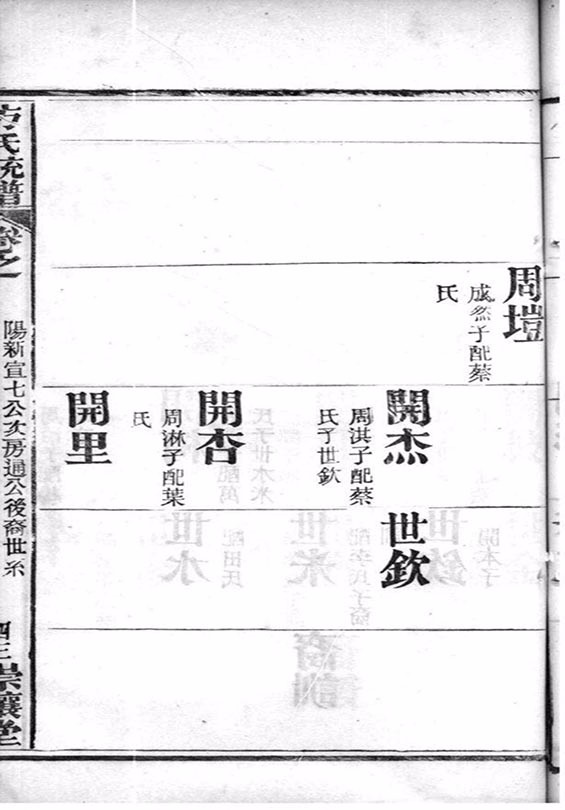 周塏
成然子配蔡
氏
開杰
周淇子配蔡
氏子世欽
世欽
開杏
周淋子配葉
氏
開里
方氏統譜
卷之
陽新宣七公次房通公後裔世系